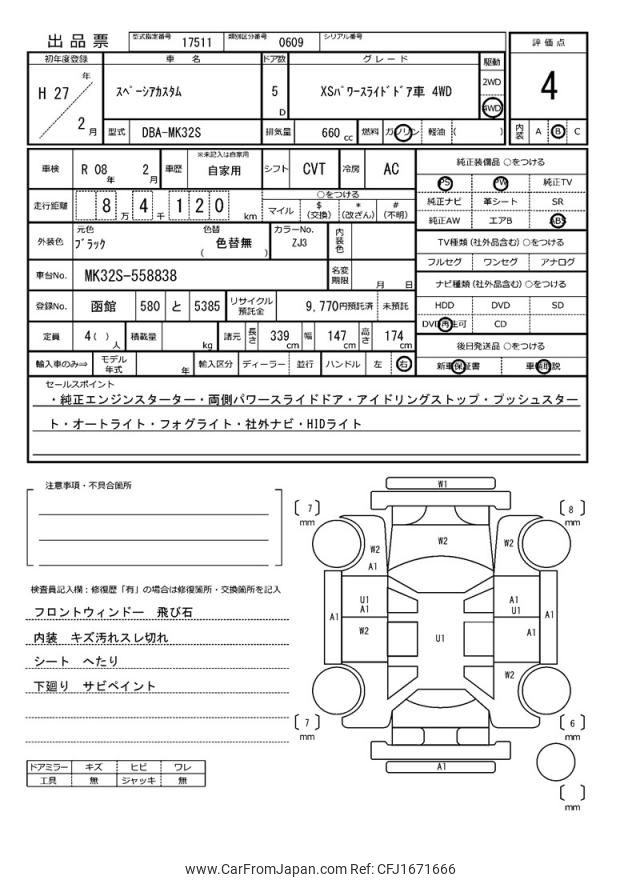 出品票
型式指定番号 17511 類別区分番号 0609 シリアル番号
初年度登録 車名 ドア数 グレード 駆動 評価点
H 27 年 2 月
スペーシアカスタム 5 D XSパワースライドドア車 4WD 2WD 4WD 4
型式 DBA-MK32S 排気量 660 cc 燃料 ガソリン 軽油 ( ) 内装 A B C
車検 R 08 年 2 月 車歴 ※未記入は自家用 自家用 シフト CVT 冷房 AC
走行距離 8 万 4 千 1 2 0 km ○をつける
マイル $ (交換) * (改ざん) # (不明)
外装色 元色 ブラック 色替 ( 色替無 ) カラーNo. ZJ3 内装色
車台No. MK32S-558838 名変期限 月 日
登録No. 函館 580 と 5385 リサイクル預託金 9,770円預託済 未預託
定員 4( ) 人 積載量 kg 諸元 長さ 339 cm 幅 147 cm 高さ 174 cm
輸入車のみ⇒ モデル年式 年 輸入区分 ディーラー 並行 ハンドル 左 右
純正装備品 ○をつける
PS PW 純正TV
純正ナビ 革シート SR
純正AW エアB ABS
TV種類 (社外品含む) ○をつける
フルセグ ワンセグ アナログ
ナビ種類 (社外品含む) ○をつける
HDD DVD SD
DVD再生可 CD
後日発送品 ○をつける
新車保証書 車輌取説
セールスポイント
・純正エンジンスターター・両側パワースライドドア・アイドリングストップ・プッシュスター
ト・オートライト・フォグライト・社外ナビ・HIDライト
注意事項・不具合箇所
検査員記入欄：修復歴「有」の場合は修復箇所・交換箇所を記入
フロントウィンドー 飛び石
内装 キズ汚れスレ切れ
シート へたり
下廻り サビペイント
ドアミラー キズ ヒビ ワレ
工具 無 ジャッキ 無
W1
[ 7 ] mm
[ 8 ] mm
W2 W2 W2
A1
U1 A1
A1 U1
A1 A1
W2 U1 A1
W2
[ 7 ] mm
[ 6 ] mm
A1
[ ] mm
www.CarFromJapan.com Ref: CFJ1671666